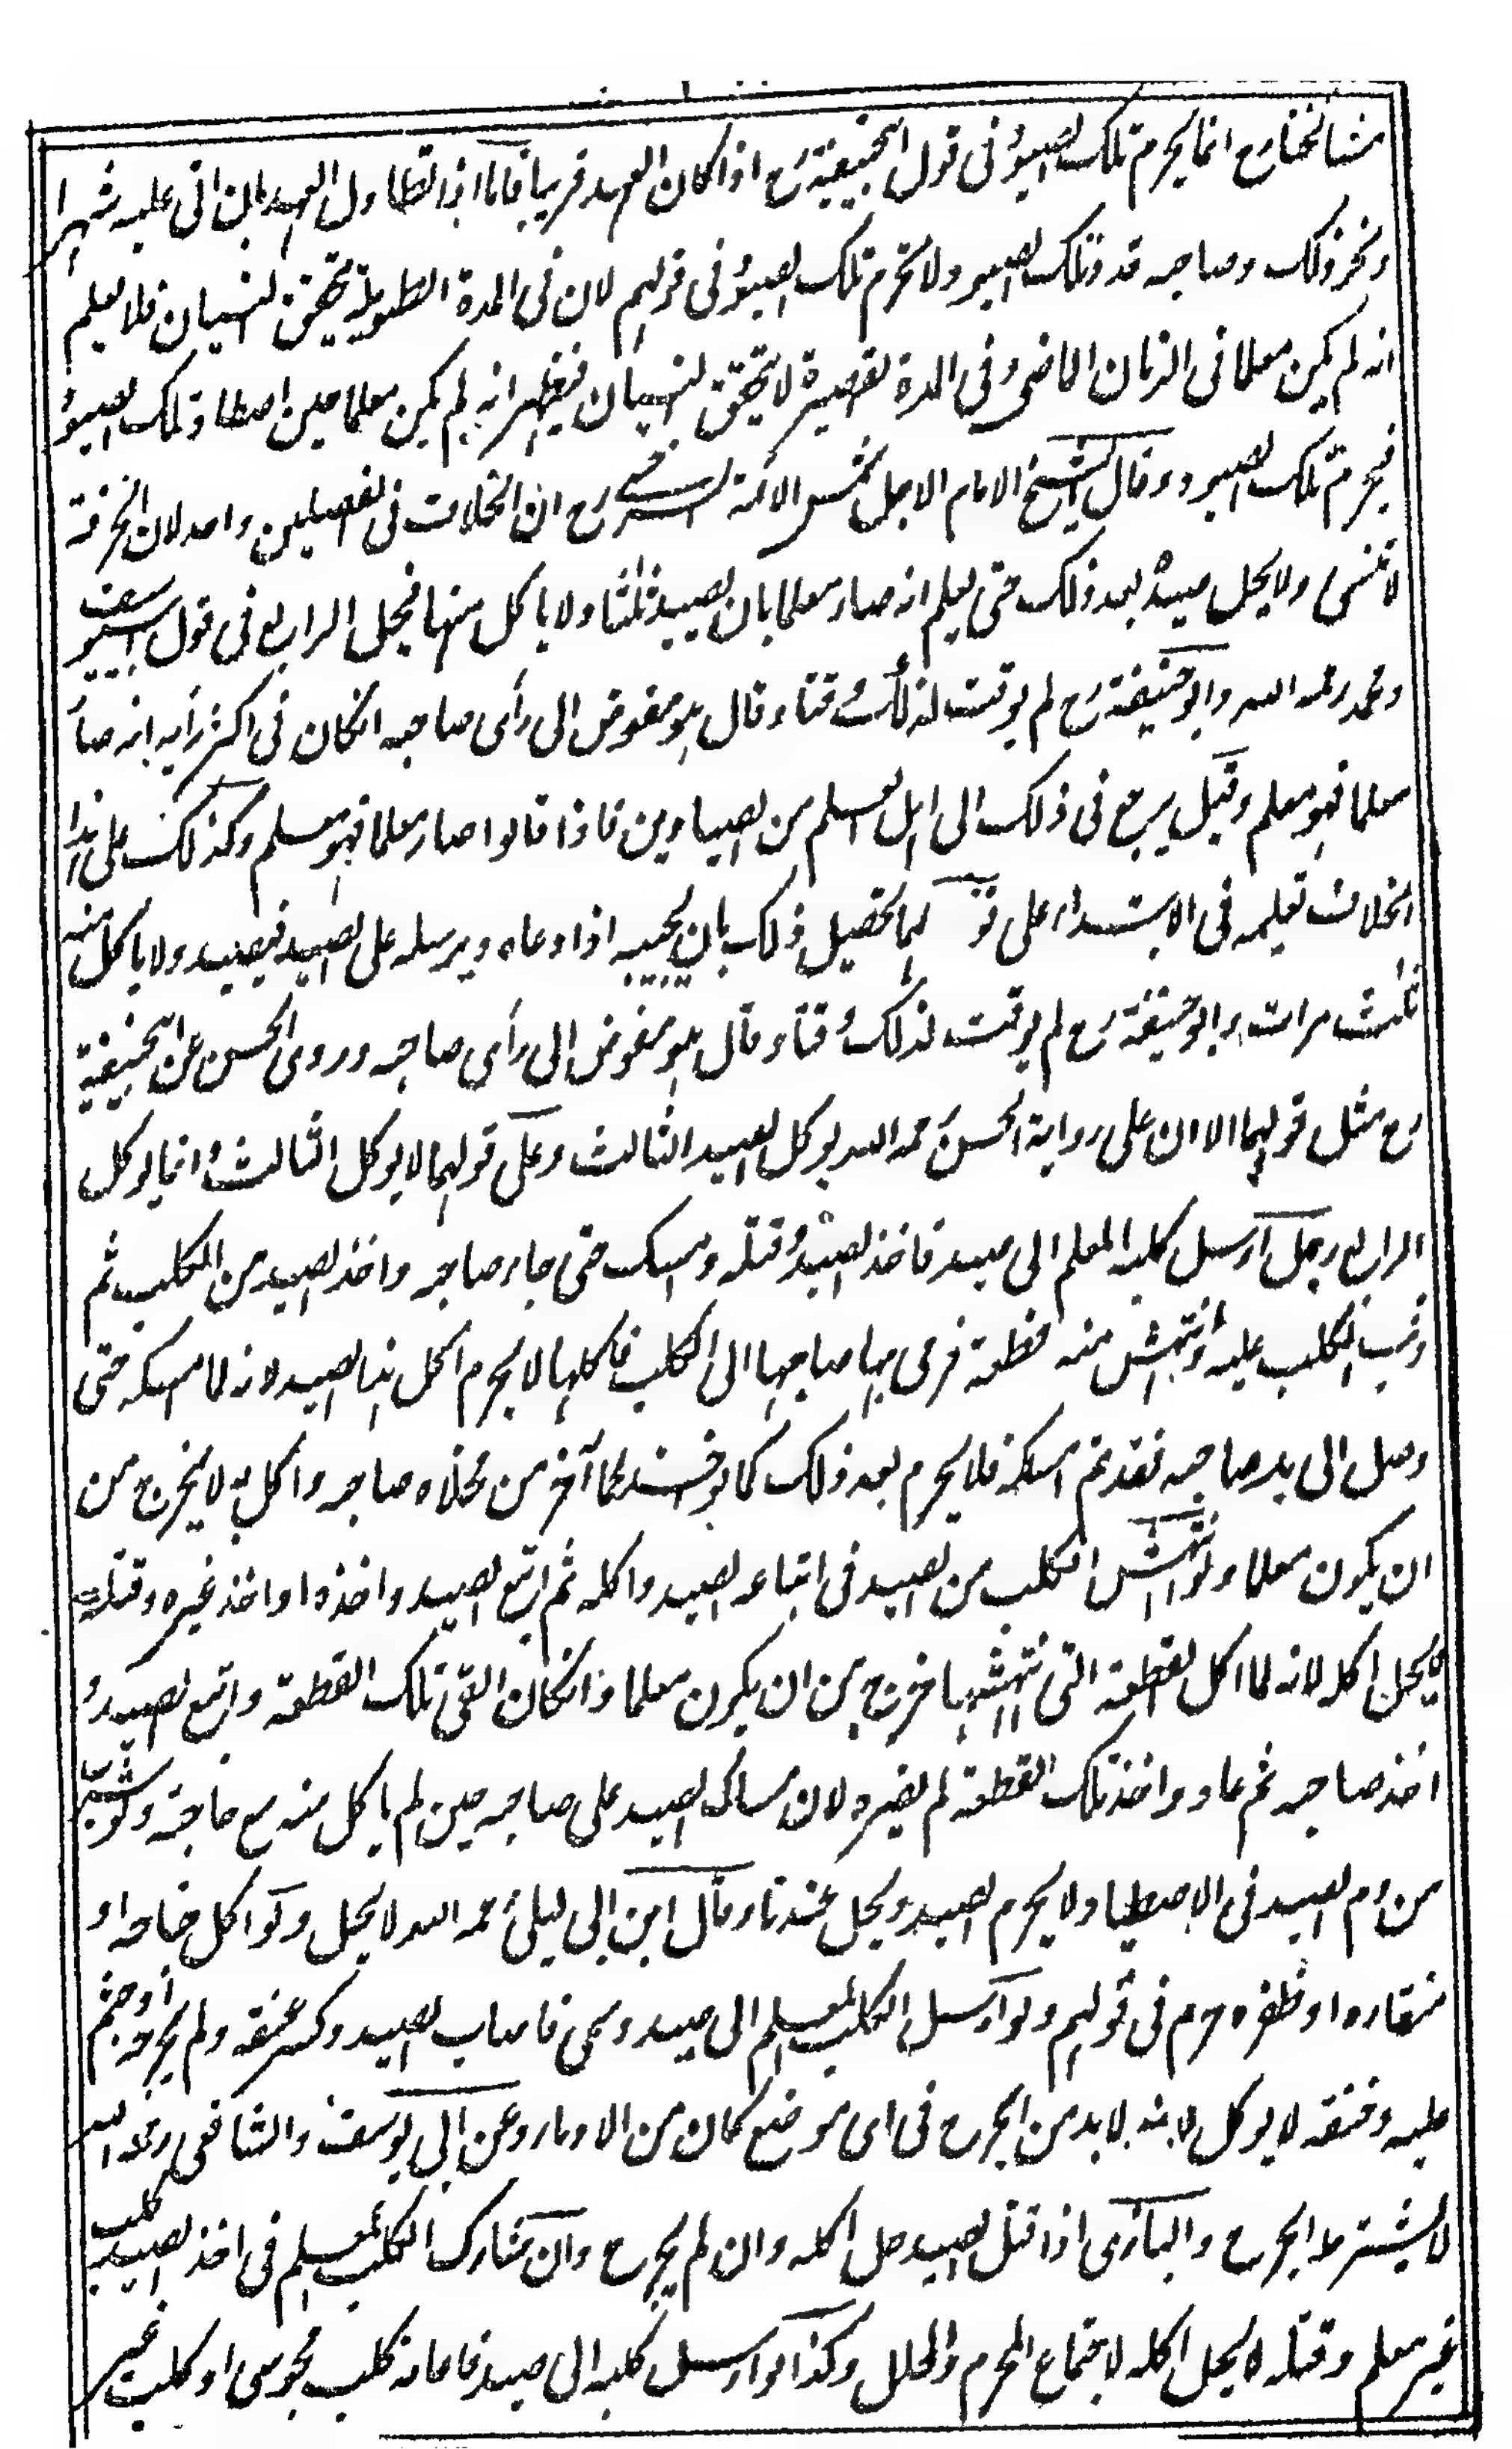 مشائخنا رح انما يحرم تلك الصيود فى قول ابيحنيفة رح اذا كان العهد قريبا فاما اذا تطاول العهد بان اتى عليه شهر او
ونحو ذلك وصاحبه قدد تلك الصيود لا تحرم تلك الصيود فى قولهم لان فى المدة الطويلة يتحقق النسيان فلا يعلم
انه لم يكن معلما فى الزمان الماضى وفى المدة القصيرة لا يتحقق النسيان فيظهر انه لم يكن معلما حين اصطاد تلك الصيود
فيحرم تلك الصيود وقال الشيخ الامام الاجل شمس الائمة السرخسى رح ان الخلاف فى الفصلين واحد لان الحرفة
لا تنسى ولا يحل صيده بعد ذلك حتى يعلم انه صار معلما بان يصيد ثلثا ولا ياكل منها فيحل الرابع فى قول ابيوسف
ومحمد رحمه الله وابوحنيفة رح لم يوقت لذلك وقتا وقال هو مفوض الى رأى صاحبه انكان فى اكثر رأيه انه صا
معلما فهو معلم وقيل يرجع فى ذلك الى اهل العلم من الصيادين فاذا قالوا صار معلما فهو معلم وكذلك على هذا
الخلاف تعليمه فى الابتداء على قو لهما تحصيل ذلك بان يجيبه اذا دعاه ويرسله على الصيد فيصيد ولا ياكل منه
ثلث مرات وابوحنيفة رح لم يوقت لذلك وقتا وقال هو مفوض الى رأى صاحبه وروى الحسن عن ابيحنيفة
رح مثل قولهما الا ان على رواية الحسن رحمه الله يوكل الصيد الثالث وعلى قولهما لا يوكل الثالث وانما يوكل
الرابع رجل ارسل كلبه المعلم الى صيد فاخذ الصيد وقتله وامسك حتى جاء صاحبه واخذ الصيد من الكلب ثم
وثب الكلب عليه وانتهش منه قطعة فرمى بها صاحبها الى الكلب فاكلها لا يحرم اكل هذا الصيد لانه لما امسكه حتى
وصل الى يد صاحبه فقد تم امساكه فلا يحرم بعد ذلك كما لو اخذ لحما آخر من مخلاه صاحبه واكل به لا يخرج من
ان يكون معلما ولو انتهش الكلب من الصيد فى اتباعه الصيد واكله ثم اتبع الصيد واخذه او اخذ غيره وقتله
لا يحل اكله لانه لما اكل القطعة التى انتهشها خرج من ان يكون معلما وانكان القى تلك القطعة واتبع الصيد و
اخذ صاحبه ثم عاد واخذ تلك القطعة لم يضره لان امساك الصيد على صاحبه حين لم ياكل منه مع حاجته ولو شرب
من دم الصيد فى الاصطياد لا يحرم الصيد ويحل عندنا وقال ابن ابى ليلى رحمه الله لا يحل ولو اكل جناحه او
منقاره او ظفره حرم فى قولهم ولو ارسل الكلب المعلم الى صيد وسمى فاصاب الصيد وكسر عنقه ولم يجرحه او جثم
عليه وخنقه لا يوكل لانه لا بد من الجرح فى اى موضع كان من الاوداج وعن ابى يوسف والشافعى رحمه الله
لا يشترط الجرح والبازى اذا قتل الصيد حل اكله وان لم يجرح وان شارك الكلب المعلم فى اخذ الصيد كلب
غير معلم وقتله لا يحل اكله لاجتماع المحرم والمحلل وكذا لو ارسل كلبه الى صيد فاعانه كلب مجوسى او كلب غير